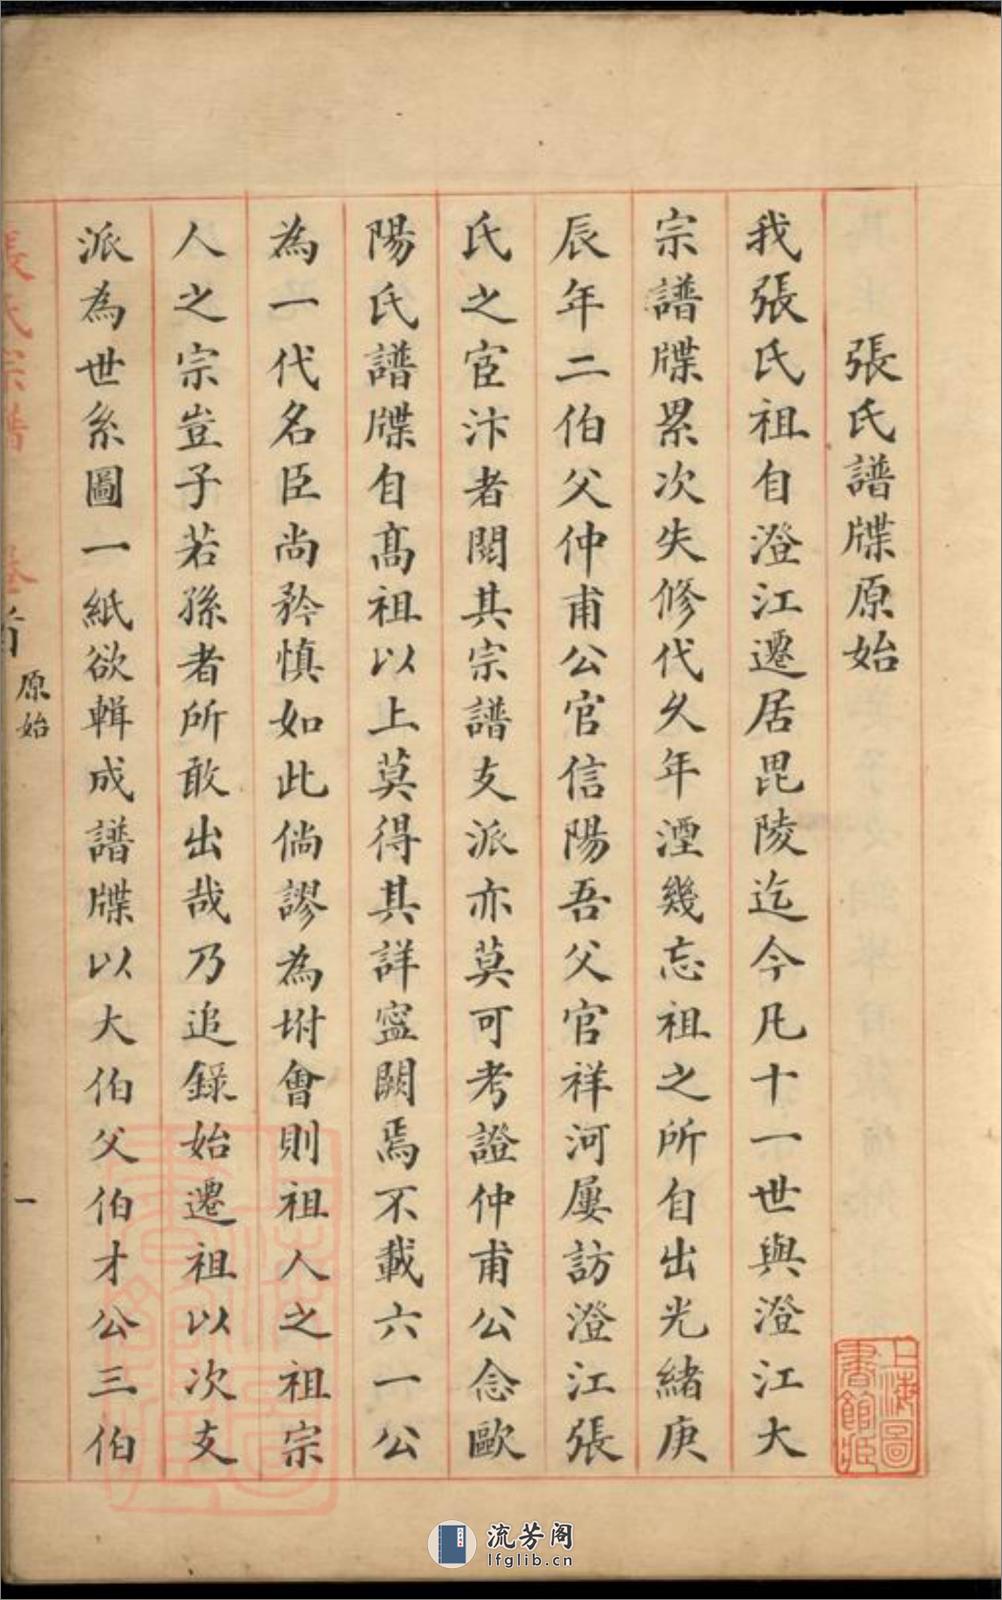 張氏譜牒原始
我張氏祖自澄江遷居毘陵迄今凡十一世與澄江大
宗譜牒累次失修代久年湮幾忘祖之所自出光緒庚
辰年二伯父仲甫公官信陽吾父官祥河屢訪澄江張
氏之宦汴者閱其宗譜支派亦莫可考證仲甫公念歐
陽氏譜牒自髙祖以上莫得其詳寍闕焉不載六一公
為一代名臣尚矜慎如此倘謬為坿會則祖人之祖宗
人之宗豈子若孫者所敢出哉乃追錄始遷祖以次支
派為世系圖一紙欲輯成譜牒以大伯父伯才公三伯
張氏宗譜 卷首 原始 一
上海圖書館藏
流芳阁
lfglib.cn